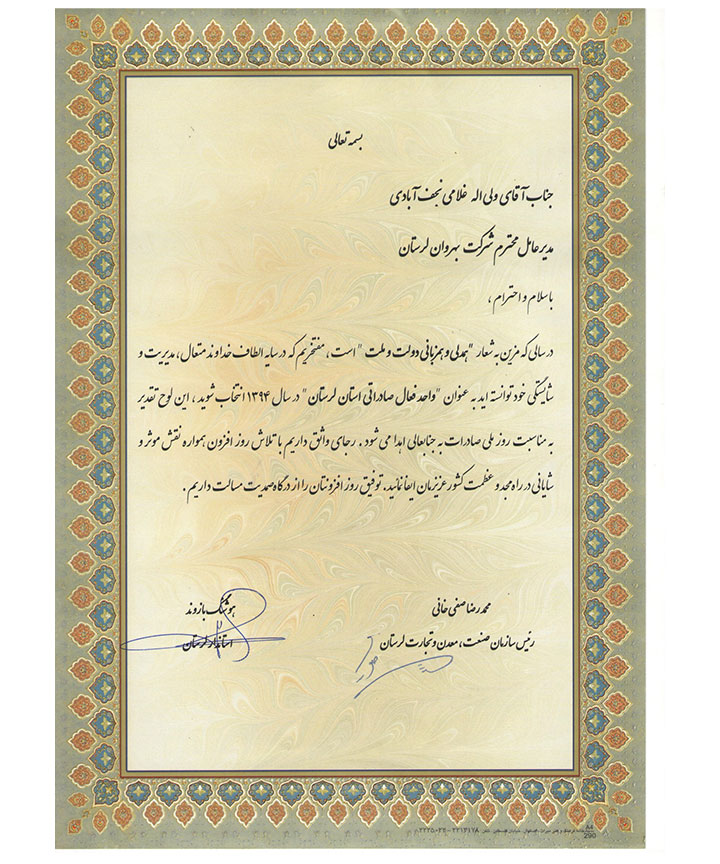 بسمه تعالی
جناب آقای ولی اله غلامی نجف آبادی
مدیرعامل محترم شرکت بهروان لرستان
باسلام و احترام ،
در سالی که مزین به شعار "همدلی و همزبانی دولت و ملت" است ، مفتخریم که در سایه الطاف خداوند متعال ، مدیریت و
شایستگی خود توانسته اید به عنوان "واحد فعال صادراتی استان لرستان" در سال ۱۳۹۴ انتخاب شوید ، این لوح تقدیر
به مناسبت روز ملی صادرات به جنابعالی اهدا می شود . رجای واثق داریم با تلاش روز افزون همواره نقش موثر و
شایانی در راه مجد و عظمت کشور عزیزمان ایفا نمائید. توفیق روز افزونتان را از درگاه صمدیت مسالت داریم .
محمدرضا صفی خانی
رئیس سازمان صنعت، معدن و تجارت لرستان
هوشنگ بازوند
استاندار لرستان
A4
290